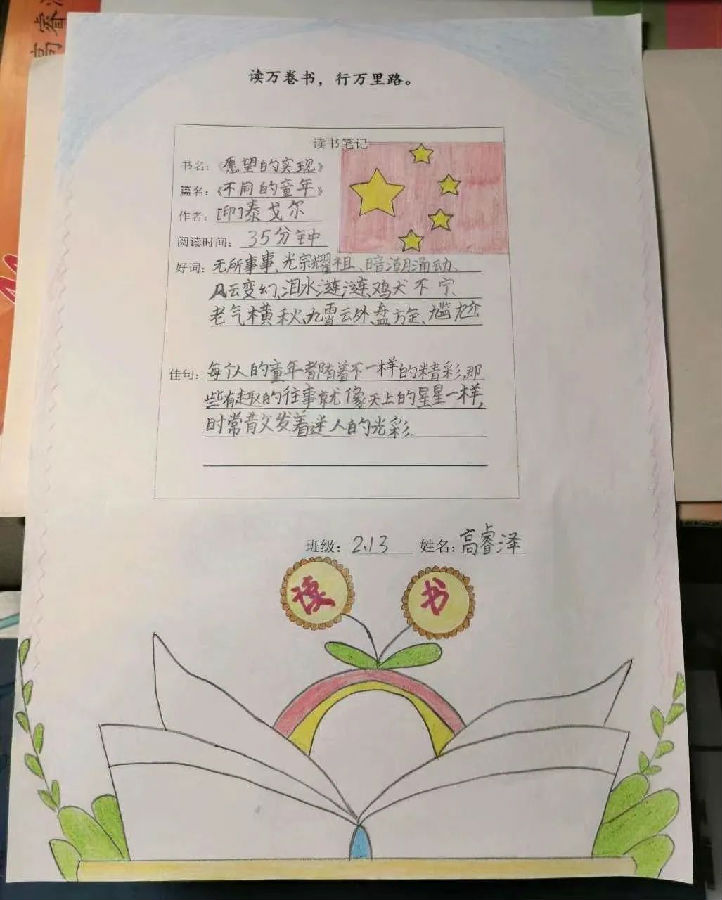 高睿
读万卷书，行万里路。
读书笔记
书名：《愿望的实现》
篇名：《不同的童年》
作者：[印]泰戈尔
阅读时间：35分钟
好词：无所事事、光宗耀祖、暗潮涌动、
风云变幻、泪水涟涟、鸡犬不宁、
老气横秋、九霄云外、盘方定、尴尬
佳句：每个人的童年都随着不一样的精彩,那
些有趣的往事就像天上的星星一样,
时常背父发着迷人的光彩
班级：2.13 姓名：高睿泽
读书